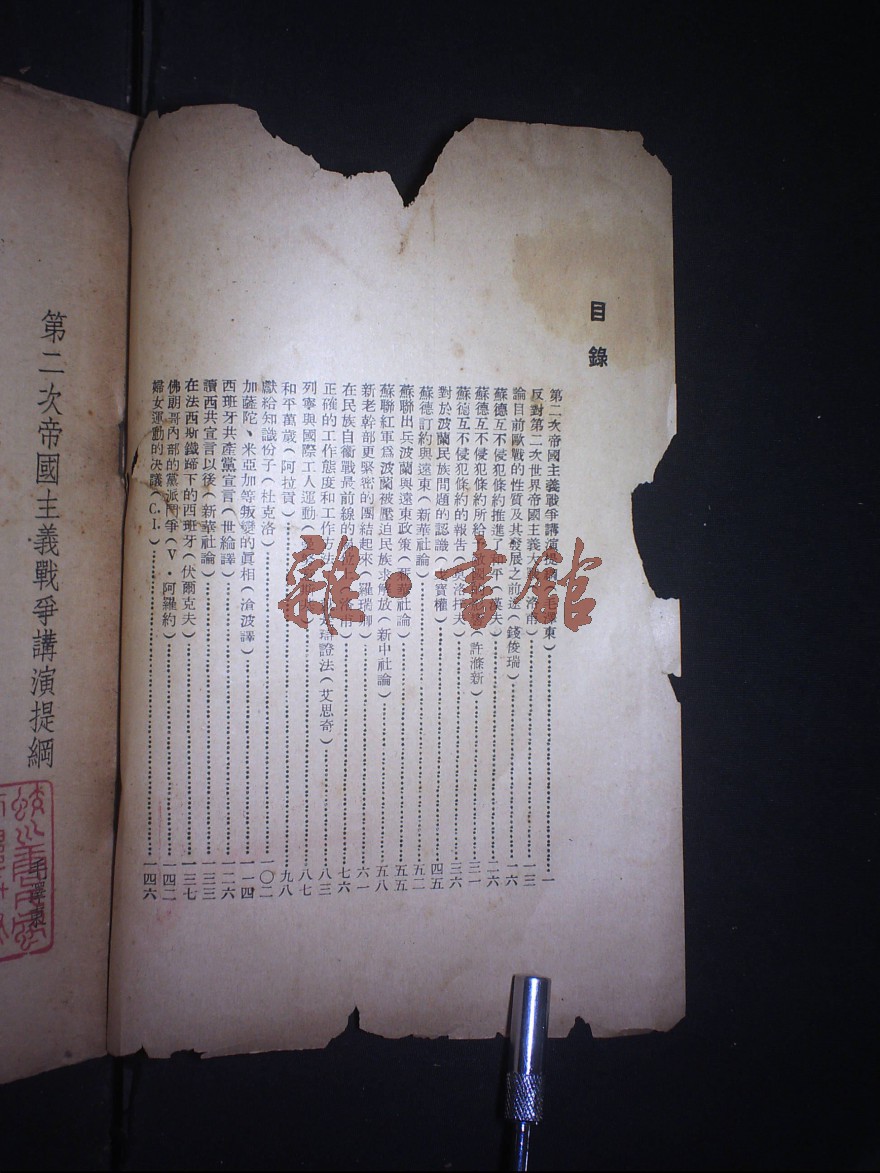 目錄
第二次帝國主義戰爭講演提綱(毛澤東)……一
反對第二次世界帝國主義大 (洛甫)……一三
論目前歐戰的性質及其發展之前途(錢俊瑞)……一六
蘇德互不侵犯條約推進了和平(漢夫)……二六
蘇德互不侵犯條約所給 (許滌新)……三一
蘇德互不侵犯條約的報告 洛托夫)……三六
對於波蘭民族問題的認識( 寶權)……四五
蘇德訂約與遠東(新華社論)……五二
蘇聯出兵波蘭與遠東政策( 華社論)……五五
蘇聯紅軍爲波蘭被壓迫民族求解放(新中社論)……五八
新老幹部更緊密的團結起來(羅瑞卿)……六一
在民族自衛戰最前線的 ……七六
正確的工作態度和工作方法 辯證法(艾思奇)……八三
列寧與國際工人運動( ……八七
和平萬歲(阿拉貢)……九八
獻給知識份子(杜克洛)……一〇二
加薩陀、米亞加等叛變的眞相(滄波譯)……一一四
西班牙共產黨宣言(世綸譯)……一二六
讀西共宣言以後(新華社論)……一三三
在法西斯鐵蹄下的西班牙(伏爾克夫)……一三七
佛朗哥內部的黨派鬥爭(V·阿羅約)……一四二
婦女運動的決議(C.I.)……一四六
第二次帝國主義戰爭講演提綱
毛澤東
雜·書館